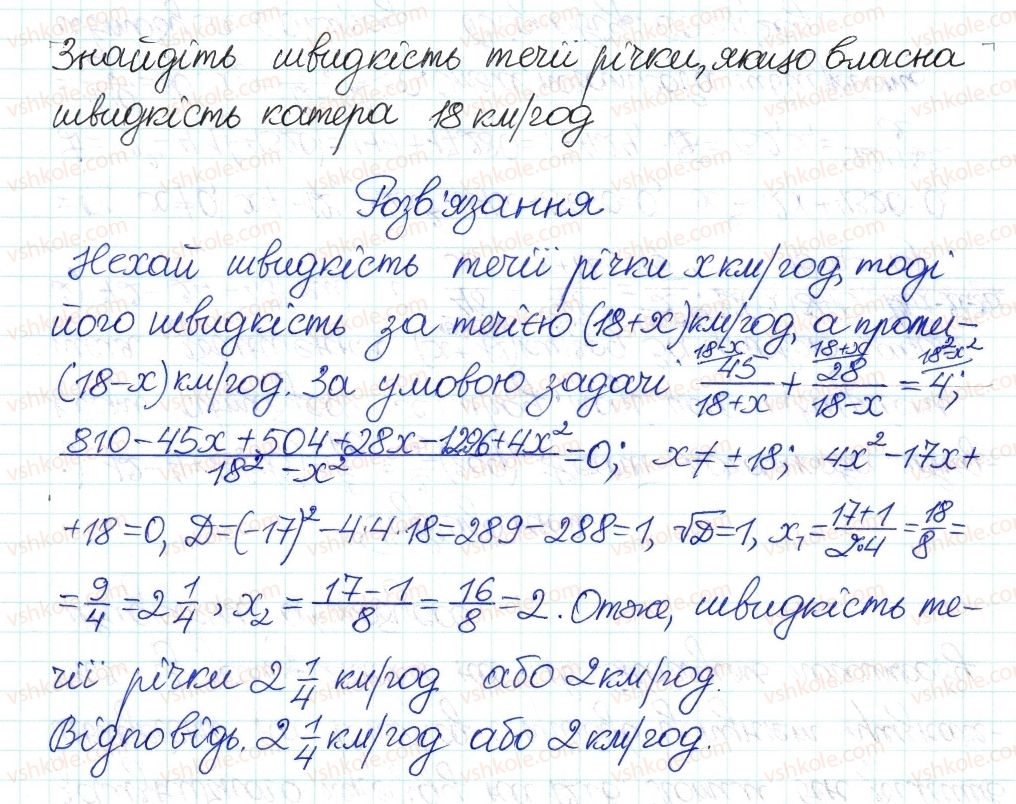 Знайдіть швидкість течії річки, якщо власна
швидкість катера 18 км/год
Розв'язання
Нехай швидкість течії річки x км/год, тоді
його швидкість за течією (18+x) км/год, а проти –
(18-x) км/год. За умовою задачі 18-x/ 45/18+x + 18+x/ 28/18-x = 18²-x²/ 4;
810-45x+504+28x-1296+4x²/18²-x² =0; x≠±18; 4x²-17x+
+18=0, D=(-17)²-4·4·18=289-288=1, √D=1, x₁=17+1/2·4=18/8=
=9/4=2 1/4, x₂=17-1/8=16/8=2. Отже, швидкість те-
чії річки 2 1/4 км/год або 2 км/год.
Відповідь. 2 1/4 км/год або 2 км/год.
vshkole.com